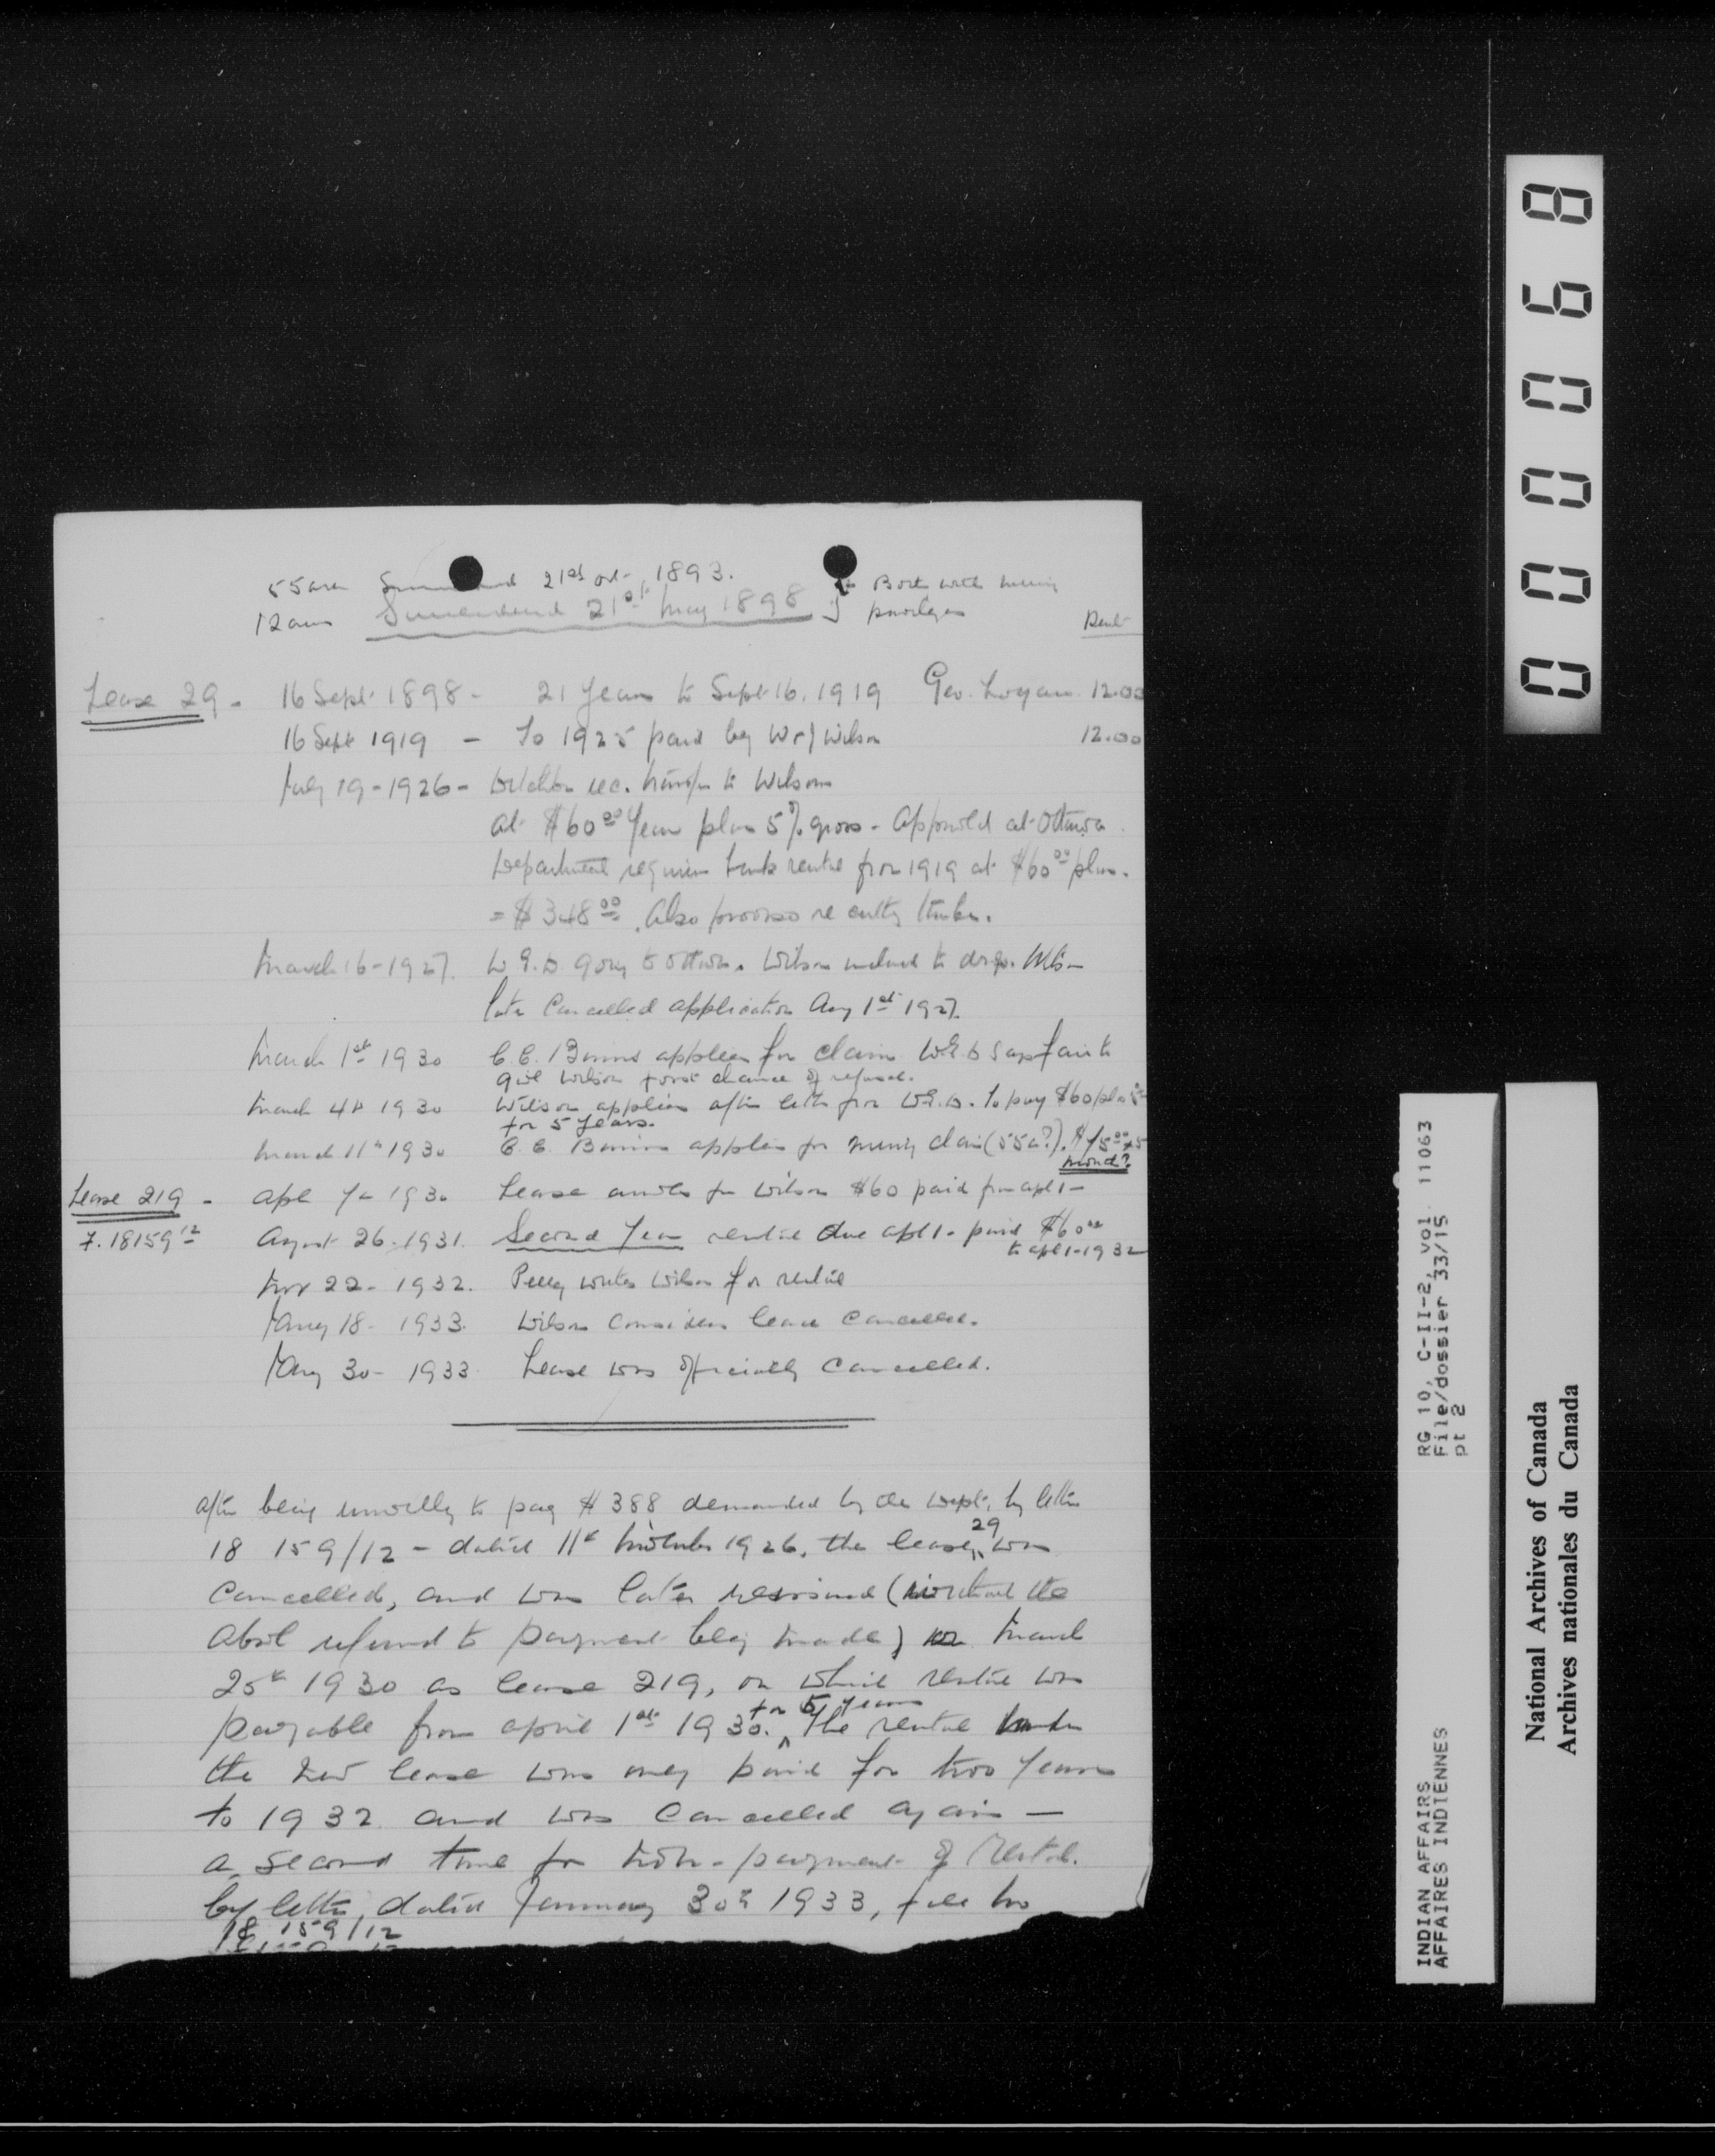 55 acres Surrendered 21st Oct 1893.
12 acres Surrendered 21st May 1898 } Both with mining
privileges
Rent
Lease 29 - 16 Sept 1898 - 21 years to Sept 16. 1919 Geo. Logan 12.00
16 Sept 1919 - To 1925 paid by Wilson 12.00
July 19-1926 - rec. transfer to Wilson
at $60 00 year plus 5% gross - Approved at Ottawa
Department requires back rental from 1919 at $60 00 plus.
= $348 00. Also proviso re cutting timber.
March 16-1927. W.E.D going to Ottawa. Wilson to drop.
later cancelled application Aug 1st 1927.
March 1st 1930 C.C. applies for claim W.E.D says fair to
give Wilson first chance of refusal.
March 4th 1930 Wilson applies after letter from W.E.D. to pay $60 plus 5%
for 5 years.
March 11th 1930 C.C. applies for mining claim (55a?). $75 00 + 5
Lease 219 - Apl 1930 Lease for Wilson $60 paid from apl 1 -
F. 18159 12 August 26-1931. Second Year rental due apl 1 - paid $60 00
to apl 1-1932
Nov 22- 1932. writes Wilson for rental
Jany 18- 1933. Wilson considers lease cancelled.
Jany 30- 1933 Lease was officially cancelled.
After being unwilling to pay $388 demanded by the Dept. by letter
18 159/12 - dated 11th November 1926, the lease 29 was
cancelled, and was later (without the
above referred to payment being made) March
25th 1930 as lease 219, on which rental was
payable from april 1st 1930. for 5 years The rental under
the new lease was only paid for two years
to 1932 and was cancelled again -
a second time for non-payment of rental.
by letter, dated January 30th 1933, file no
18 159/12
000068
RG 10, C-II-2, vol. 11063
File/dossier 33/15
pt 2
INDIAN AFFAIRS
AFFAIRES INDIENNES
National Archives of Canada
Archives nationales du Canada